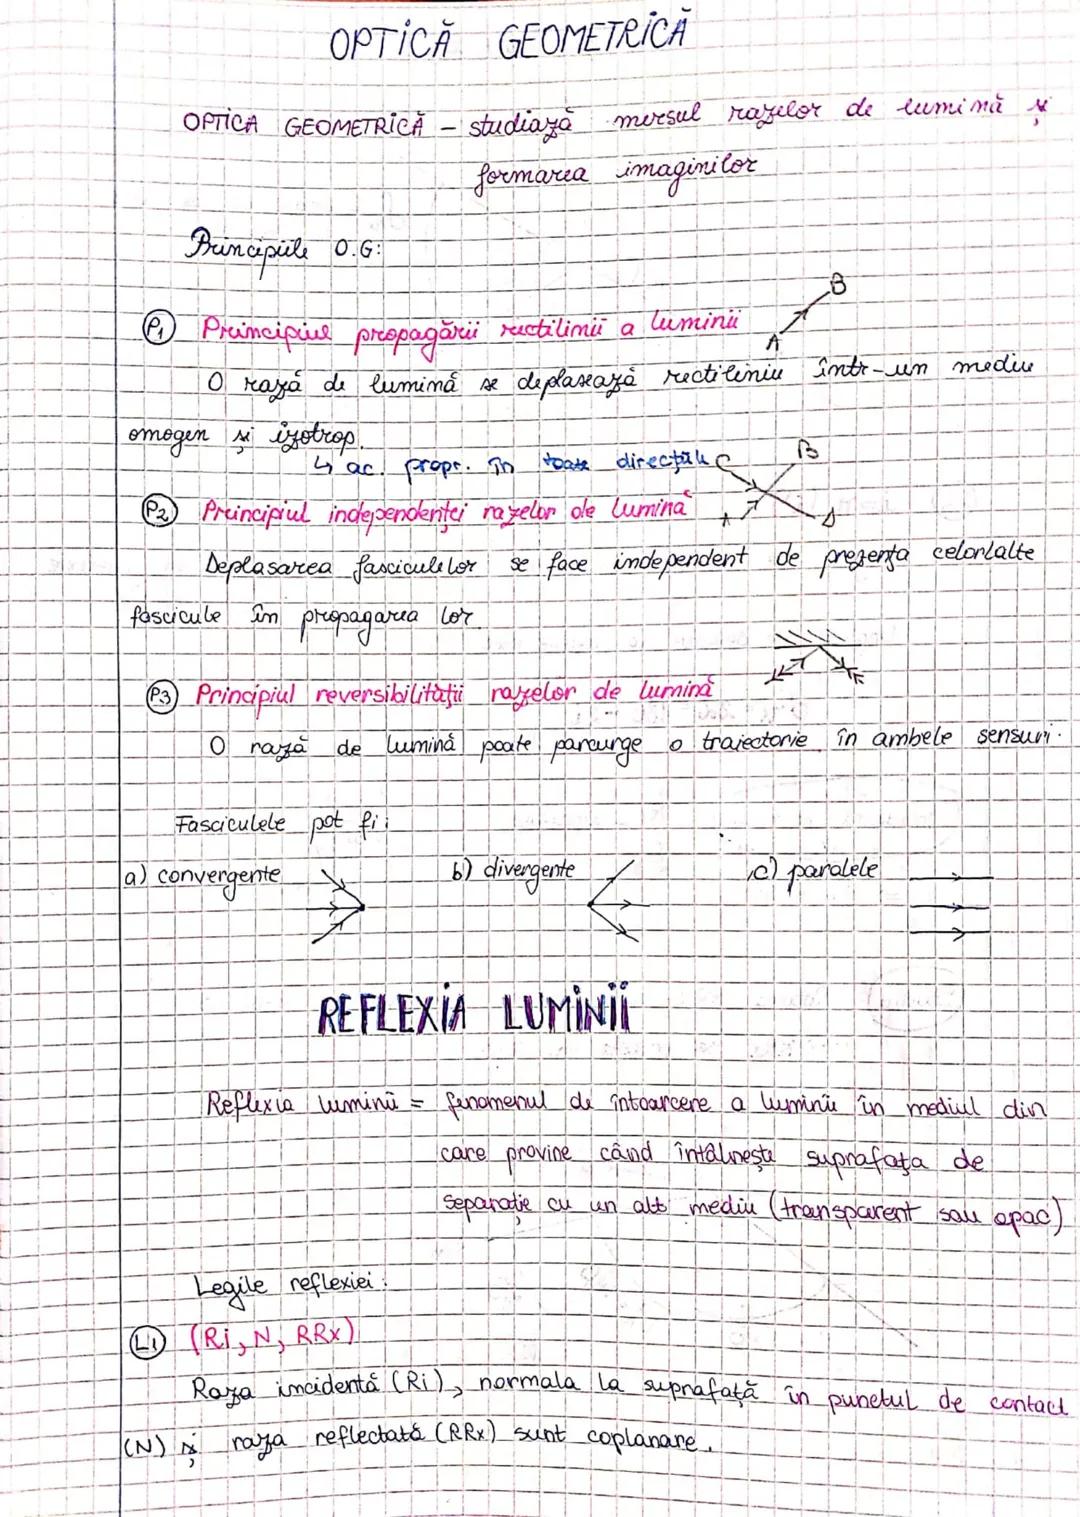 OPTICĂ GEOMETRICĂ
OPTICA GEOMETRICĂ - studiază mersul razelor de lumină și
formarea imaginilor
Principiile O.G:
P1 Principiul propagării rectilinii a luminii
A B
O rază de lumină se deplasează rectiliniu într-un mediu
omogen și izotrop.
↳ ac. propr. în toate direcțiile
C B
P2 Principiul independenței razelor de lumină
A D
Deplasarea fasciculelor se face independent de prezența celorlalte
fascicule în propagarea lor.
P3 Principiul reversibilității razelor de lumină
O rază de lumină poate parcurge o traiectorie în ambele sensuri.
Fasciculele pot fi:
a) convergente b) divergente c) paralele
REFLEXIA LUMINII
Reflexia luminii = fenomenul de întoarcere a luminii în mediul din
care provine când întâlnește suprafața de
separație cu un alt mediu (transparent sau opac)
Legile reflexiei:
L1 (Ri, N, RRx)
Raza incidentă (Ri), normala la suprafață în punctul de contact
(N) și raza reflectată (RRx) sunt coplanare.